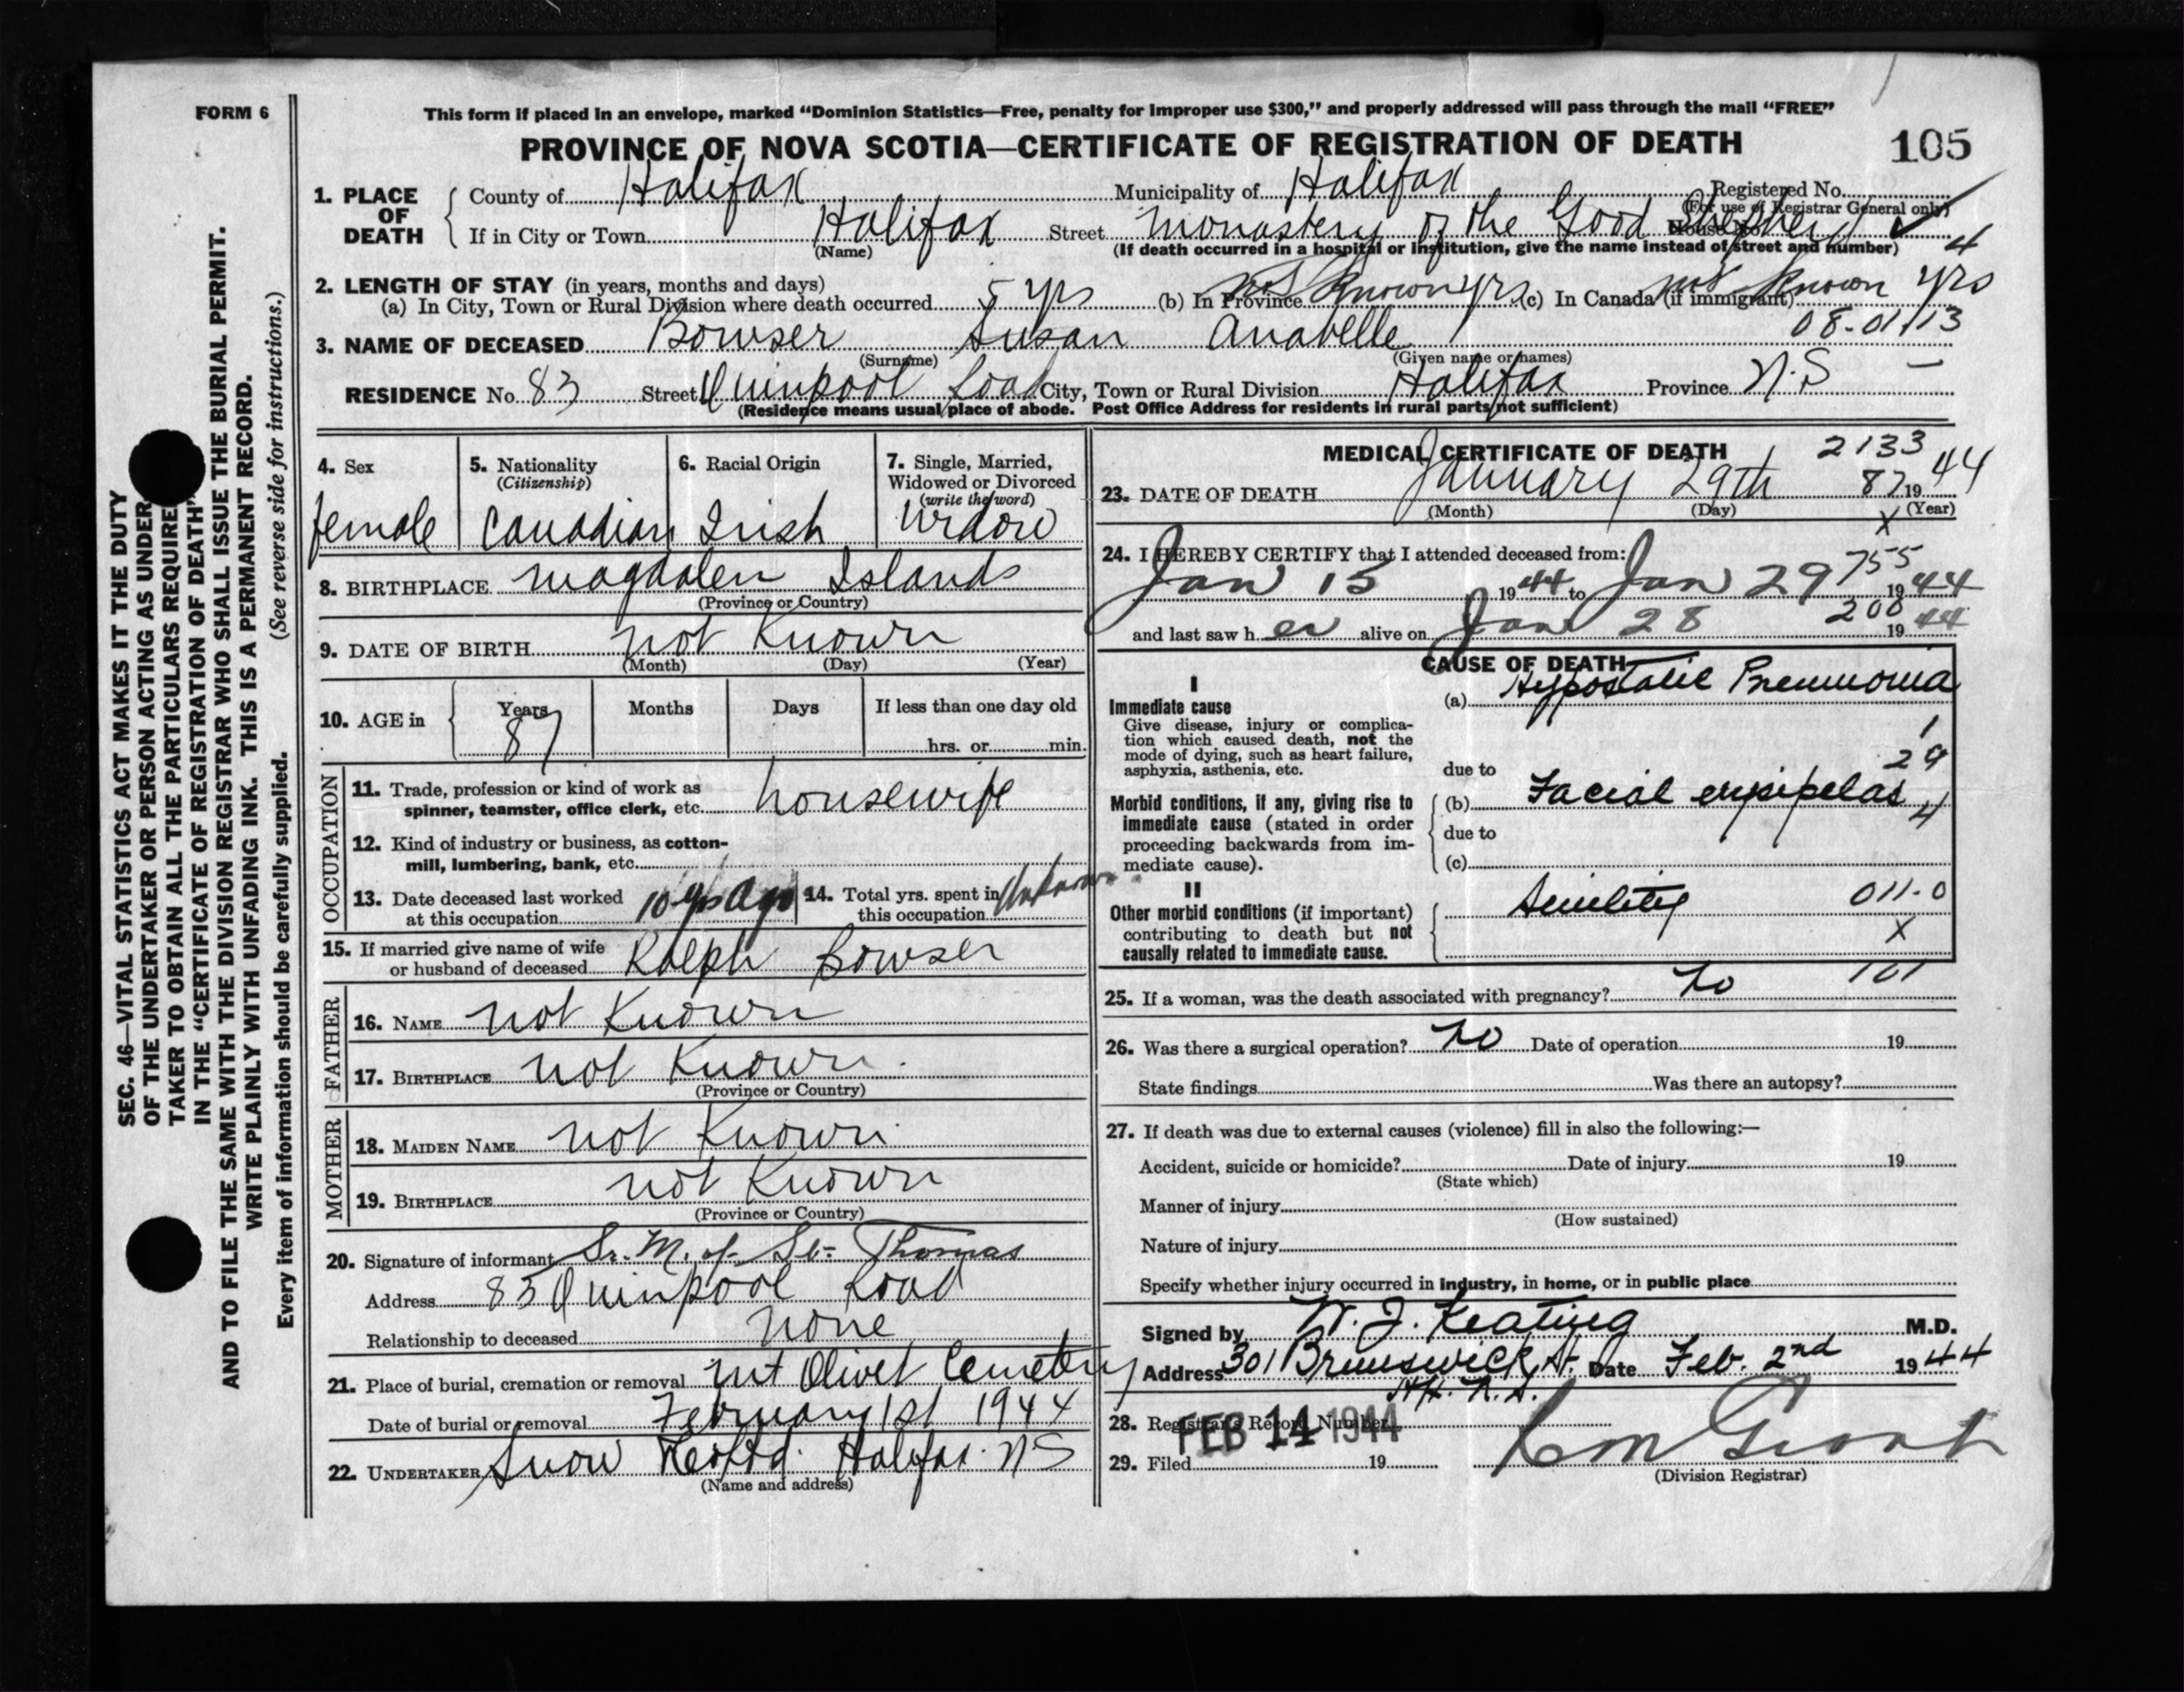 FORM 6
This form if placed in an envelope, marked “Dominion Statistics—Free, penalty for improper use $300,” and properly addressed will pass through the mail “FREE”
PROVINCE OF NOVA SCOTIA—CERTIFICATE OF REGISTRATION OF DEATH 105
SEC. 46—VITAL STATISTICS ACT MAKES IT THE DUTY
OF THE UNDERTAKER OR PERSON ACTING AS UNDER
TAKER TO OBTAIN ALL THE PARTICULARS REQUIRE
IN THE “CERTIFICATE OF REGISTRATION OF DEATH”
AND TO FILE THE SAME WITH THE DIVISION REGISTRAR WHO SHALL ISSUE THE BURIAL PERMIT.
WRITE PLAINLY WITH UNFADING INK. THIS IS A PERMANENT RECORD.
Every item of information should be carefully supplied. (See reverse side for instructions.)
1. PLACE OF DEATH
County of Halifax Municipality of Halifax Registered No.
(For use of Registrar General only)
If in City or Town Halifax Street Monastery of the Good Shepherd House No. 4
(Name) (If death occurred in a hospital or institution, give the name instead of street and number)
2. LENGTH OF STAY (in years, months and days)
(a) In City, Town or Rural Division where death occurred 5 yrs (b) In Province not known yrs (c) In Canada (if immigrant) not known yrs
08-01/13
3. NAME OF DECEASED Bowser Susan Anabelle
(Surname) (Given name or names)
RESIDENCE No. 83 Street Quinpool Road City, Town or Rural Division Halifax Province N.S –
(Residence means usual place of abode. Post Office Address for residents in rural parts not sufficient)
4. Sex
female
5. Nationality
(Citizenship)
Canadian
6. Racial Origin
Irish
7. Single, Married,
Widowed or Divorced
(write the word)
Widow
8. BIRTHPLACE Magdalen Islands
(Province or Country)
9. DATE OF BIRTH not Known
(Month) (Day) (Year)
10. AGE in Years Months Days If less than one day old
87 hrs. or min.
OCCUPATION
11. Trade, profession or kind of work as
spinner, teamster, office clerk, etc. housewife
12. Kind of industry or business, as cotton-
mill, lumbering, bank, etc.
13. Date deceased last worked
at this occupation 10 yrs ago
14. Total yrs. spent in
this occupation Unknown
15. If married give name of wife
or husband of deceased Ralph Bowser
FATHER
16. NAME not Known
17. BIRTHPLACE not Known
(Province or Country)
MOTHER
18. MAIDEN NAME not Known
19. BIRTHPLACE not Known
(Province or Country)
20. Signature of informant Sr. M. of St. Thomas
Address 83 Quinpool Road
Relationship to deceased None
21. Place of burial, cremation or removal Mt Olivet Cemetery
Date of burial or removal February 1st 1944
22. UNDERTAKER Snow Halifax NS
(Name and address)
MEDICAL CERTIFICATE OF DEATH 2133
23. DATE OF DEATH January 29th 87 1944
(Month) (Day) (Year)
X
24. I HEREBY CERTIFY that I attended deceased from:
755
Jan 15 1944 to Jan 29 1944
200
and last saw her alive on Jan 28 1944
CAUSE OF DEATH
I
Immediate cause
Give disease, injury or complica-
tion which caused death, not the
mode of dying, such as heart failure,
asphyxia, asthenia, etc.
(a) Hypostatic Pneumonia
1
29
due to
Morbid conditions, if any, giving rise to
immediate cause (stated in order
proceeding backwards from im-
mediate cause).
(b) Facial erysipelas 4
due to
(c)
II
Other morbid conditions (if important)
contributing to death but not
causally related to immediate cause.
Senility 011-0
X
101
25. If a woman, was the death associated with pregnancy? No
26. Was there a surgical operation? No Date of operation 19
State findings Was there an autopsy?
27. If death was due to external causes (violence) fill in also the following:—
Accident, suicide or homicide? Date of injury 19
(State which)
Manner of injury
(How sustained)
Nature of injury
Specify whether injury occurred in industry, in home, or in public place
Signed by W. J. Keating M.D.
Address 301 Brunswick St. Date Feb. 2nd 1944
Hx. N.S.
28. Registrar's Record Number
FEB 14 1944
29. Filed 19
(Division Registrar)